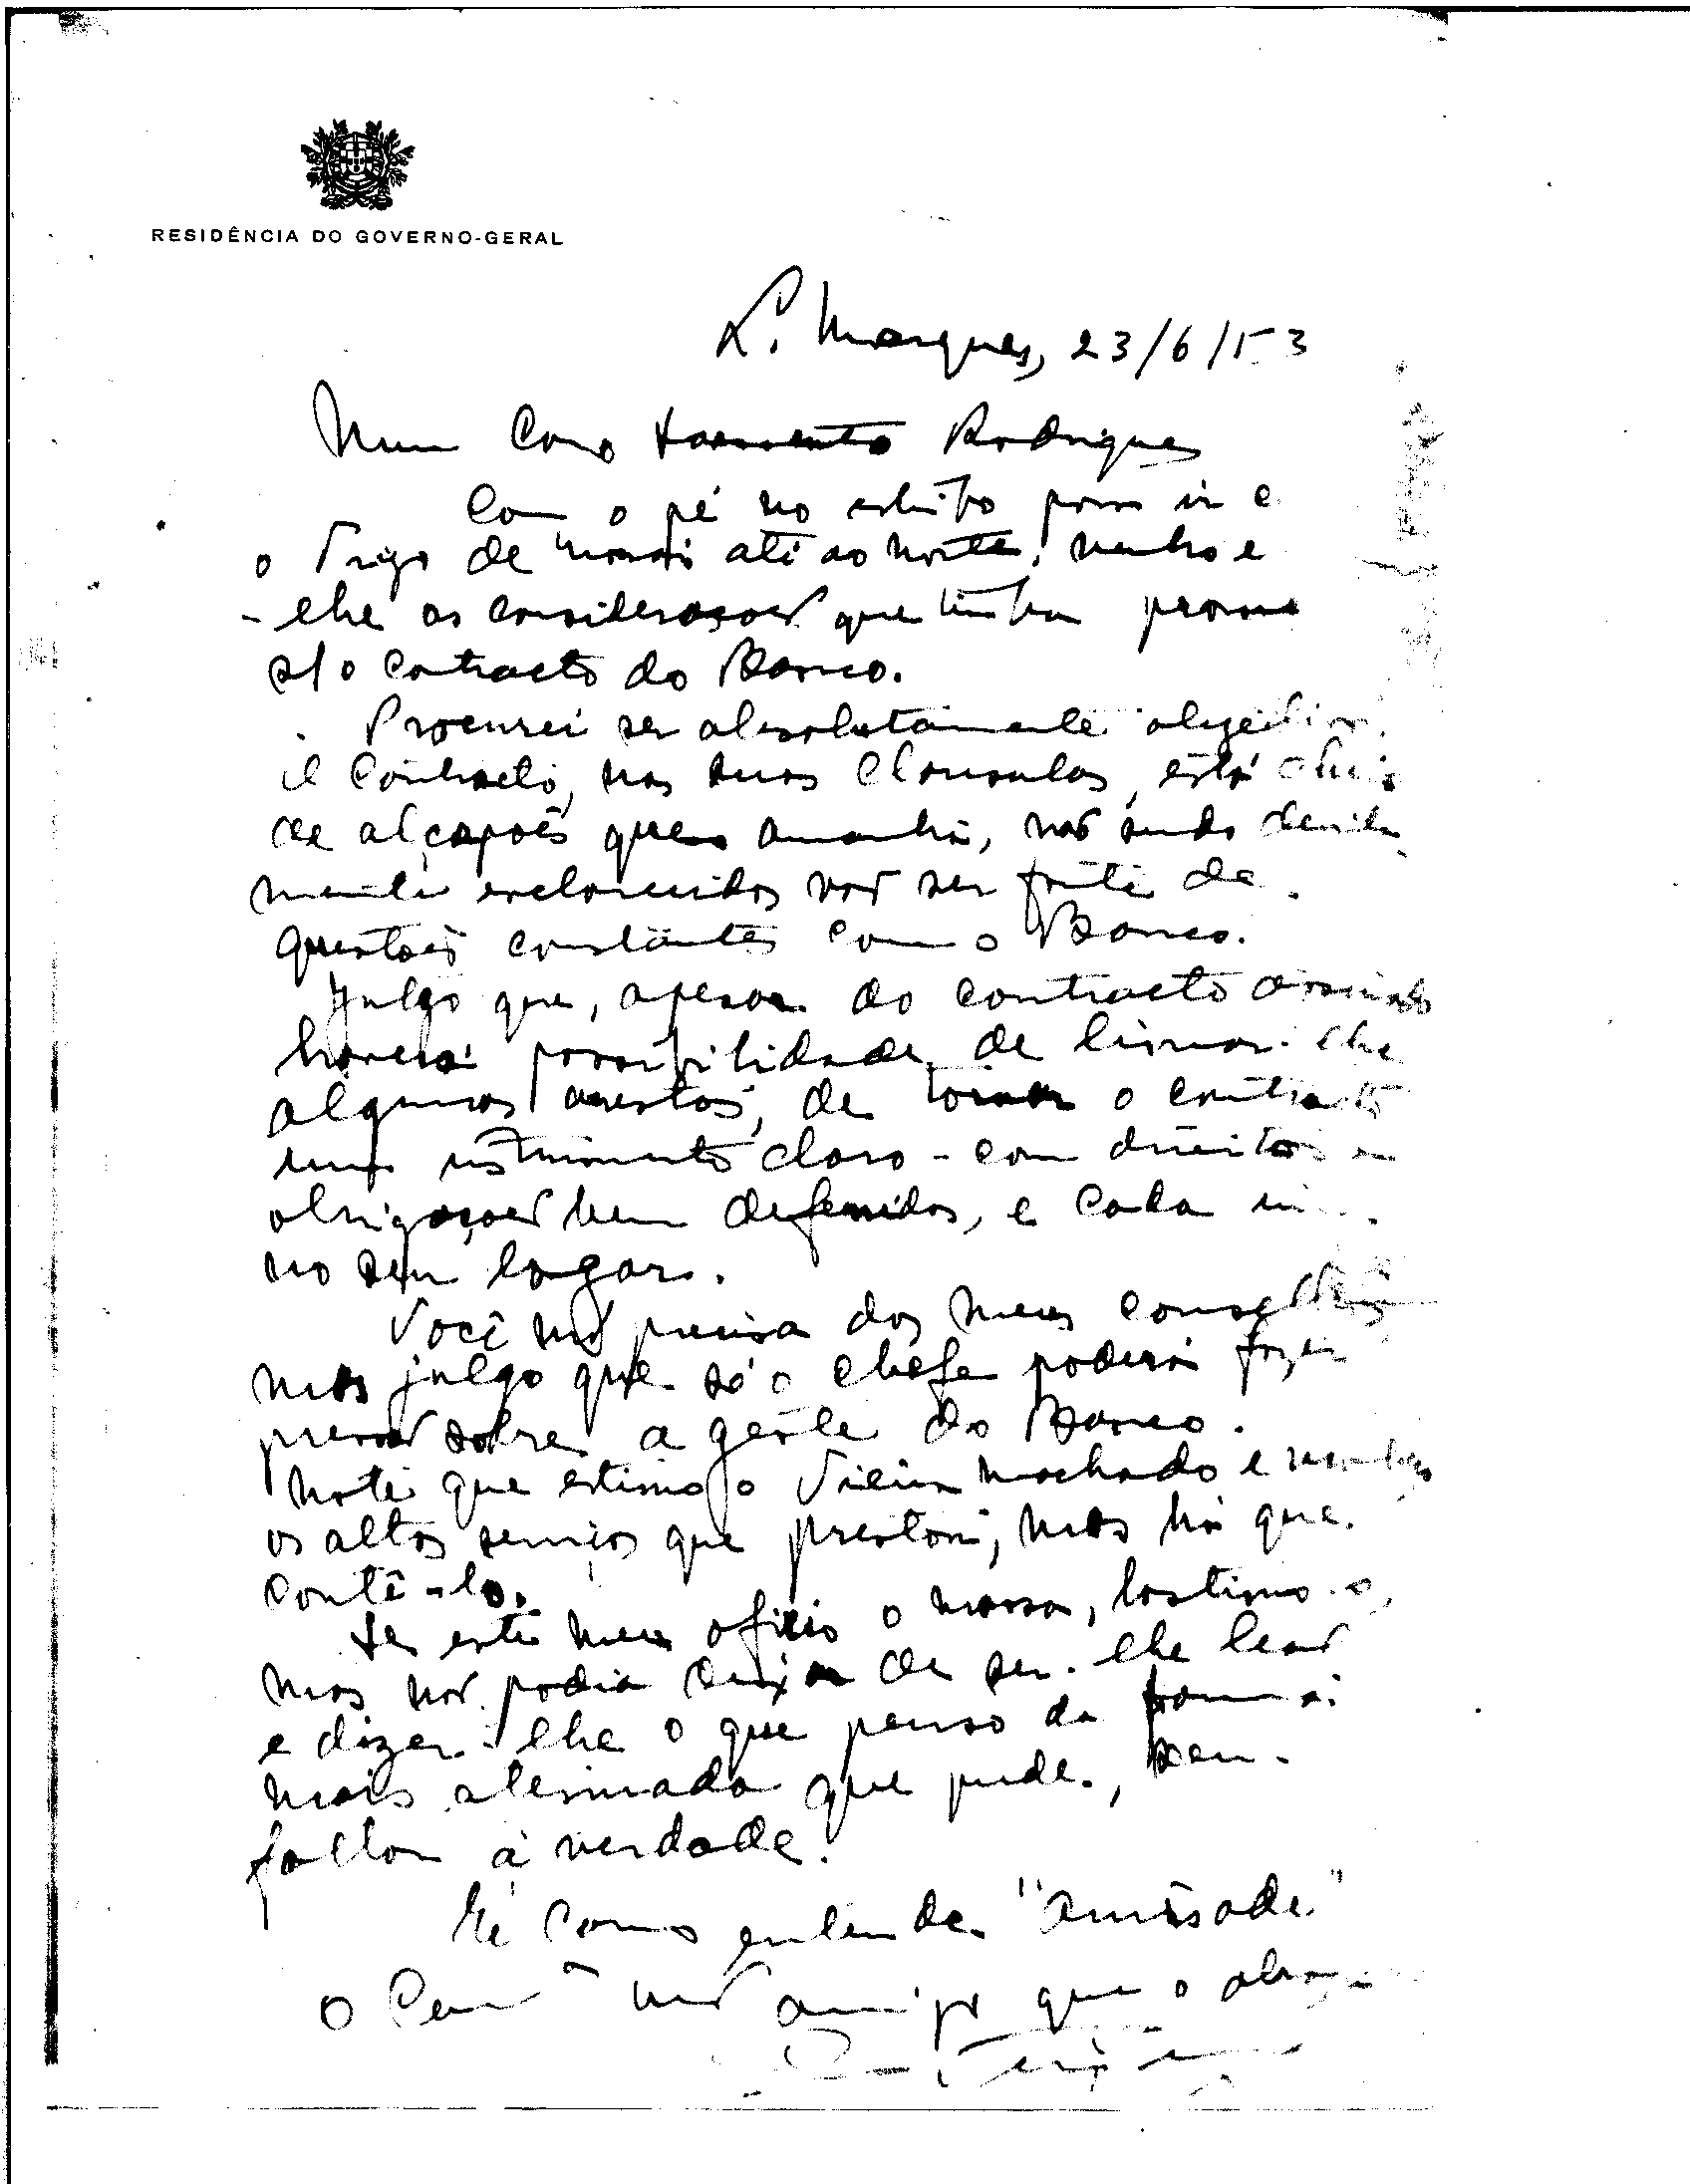 RESIDÊNCIA DO GOVERNO-GERAL
L. Marques, 23/6/53
Meu Caro Sarmento Rodrigues
Com o pé no estribo para ir
o Vigo de até ao norte, venho
-lhe as considerações que tinha
s/ o contracto do Banco.
Procurei ser absolutamente
O contracto, nas suas clausulas, está
de alçapões que amanhã, não sendo
mente esclarecidos vão ser fonte de
questões constantes com o Banco.
Julgo que, apesar do contracto assinado
haverá possibilidade de limar-lhe
algumas arestas, de tornar o contracto
um instrumento claro - com direitos e
obrigações bem defenidos, e cada um
no seu logar.
Você não precisa dos meus conselhos
mas julgo que só o chefe poderá fazer
pressão sobre a gente do Banco.
Note que estimo o Vieira Machado e
os altos serviços que prestou, mas há que
contê-lo.
Se este meu oficio o massa, lastimo-o,
mas não podia deixar de ser-lhe leal
e dizer-lhe o que penso da forma
mais que pude, sem
faltar à verdade.
É como entende "amisade"
O seu amigo que o abraça
Teixeira